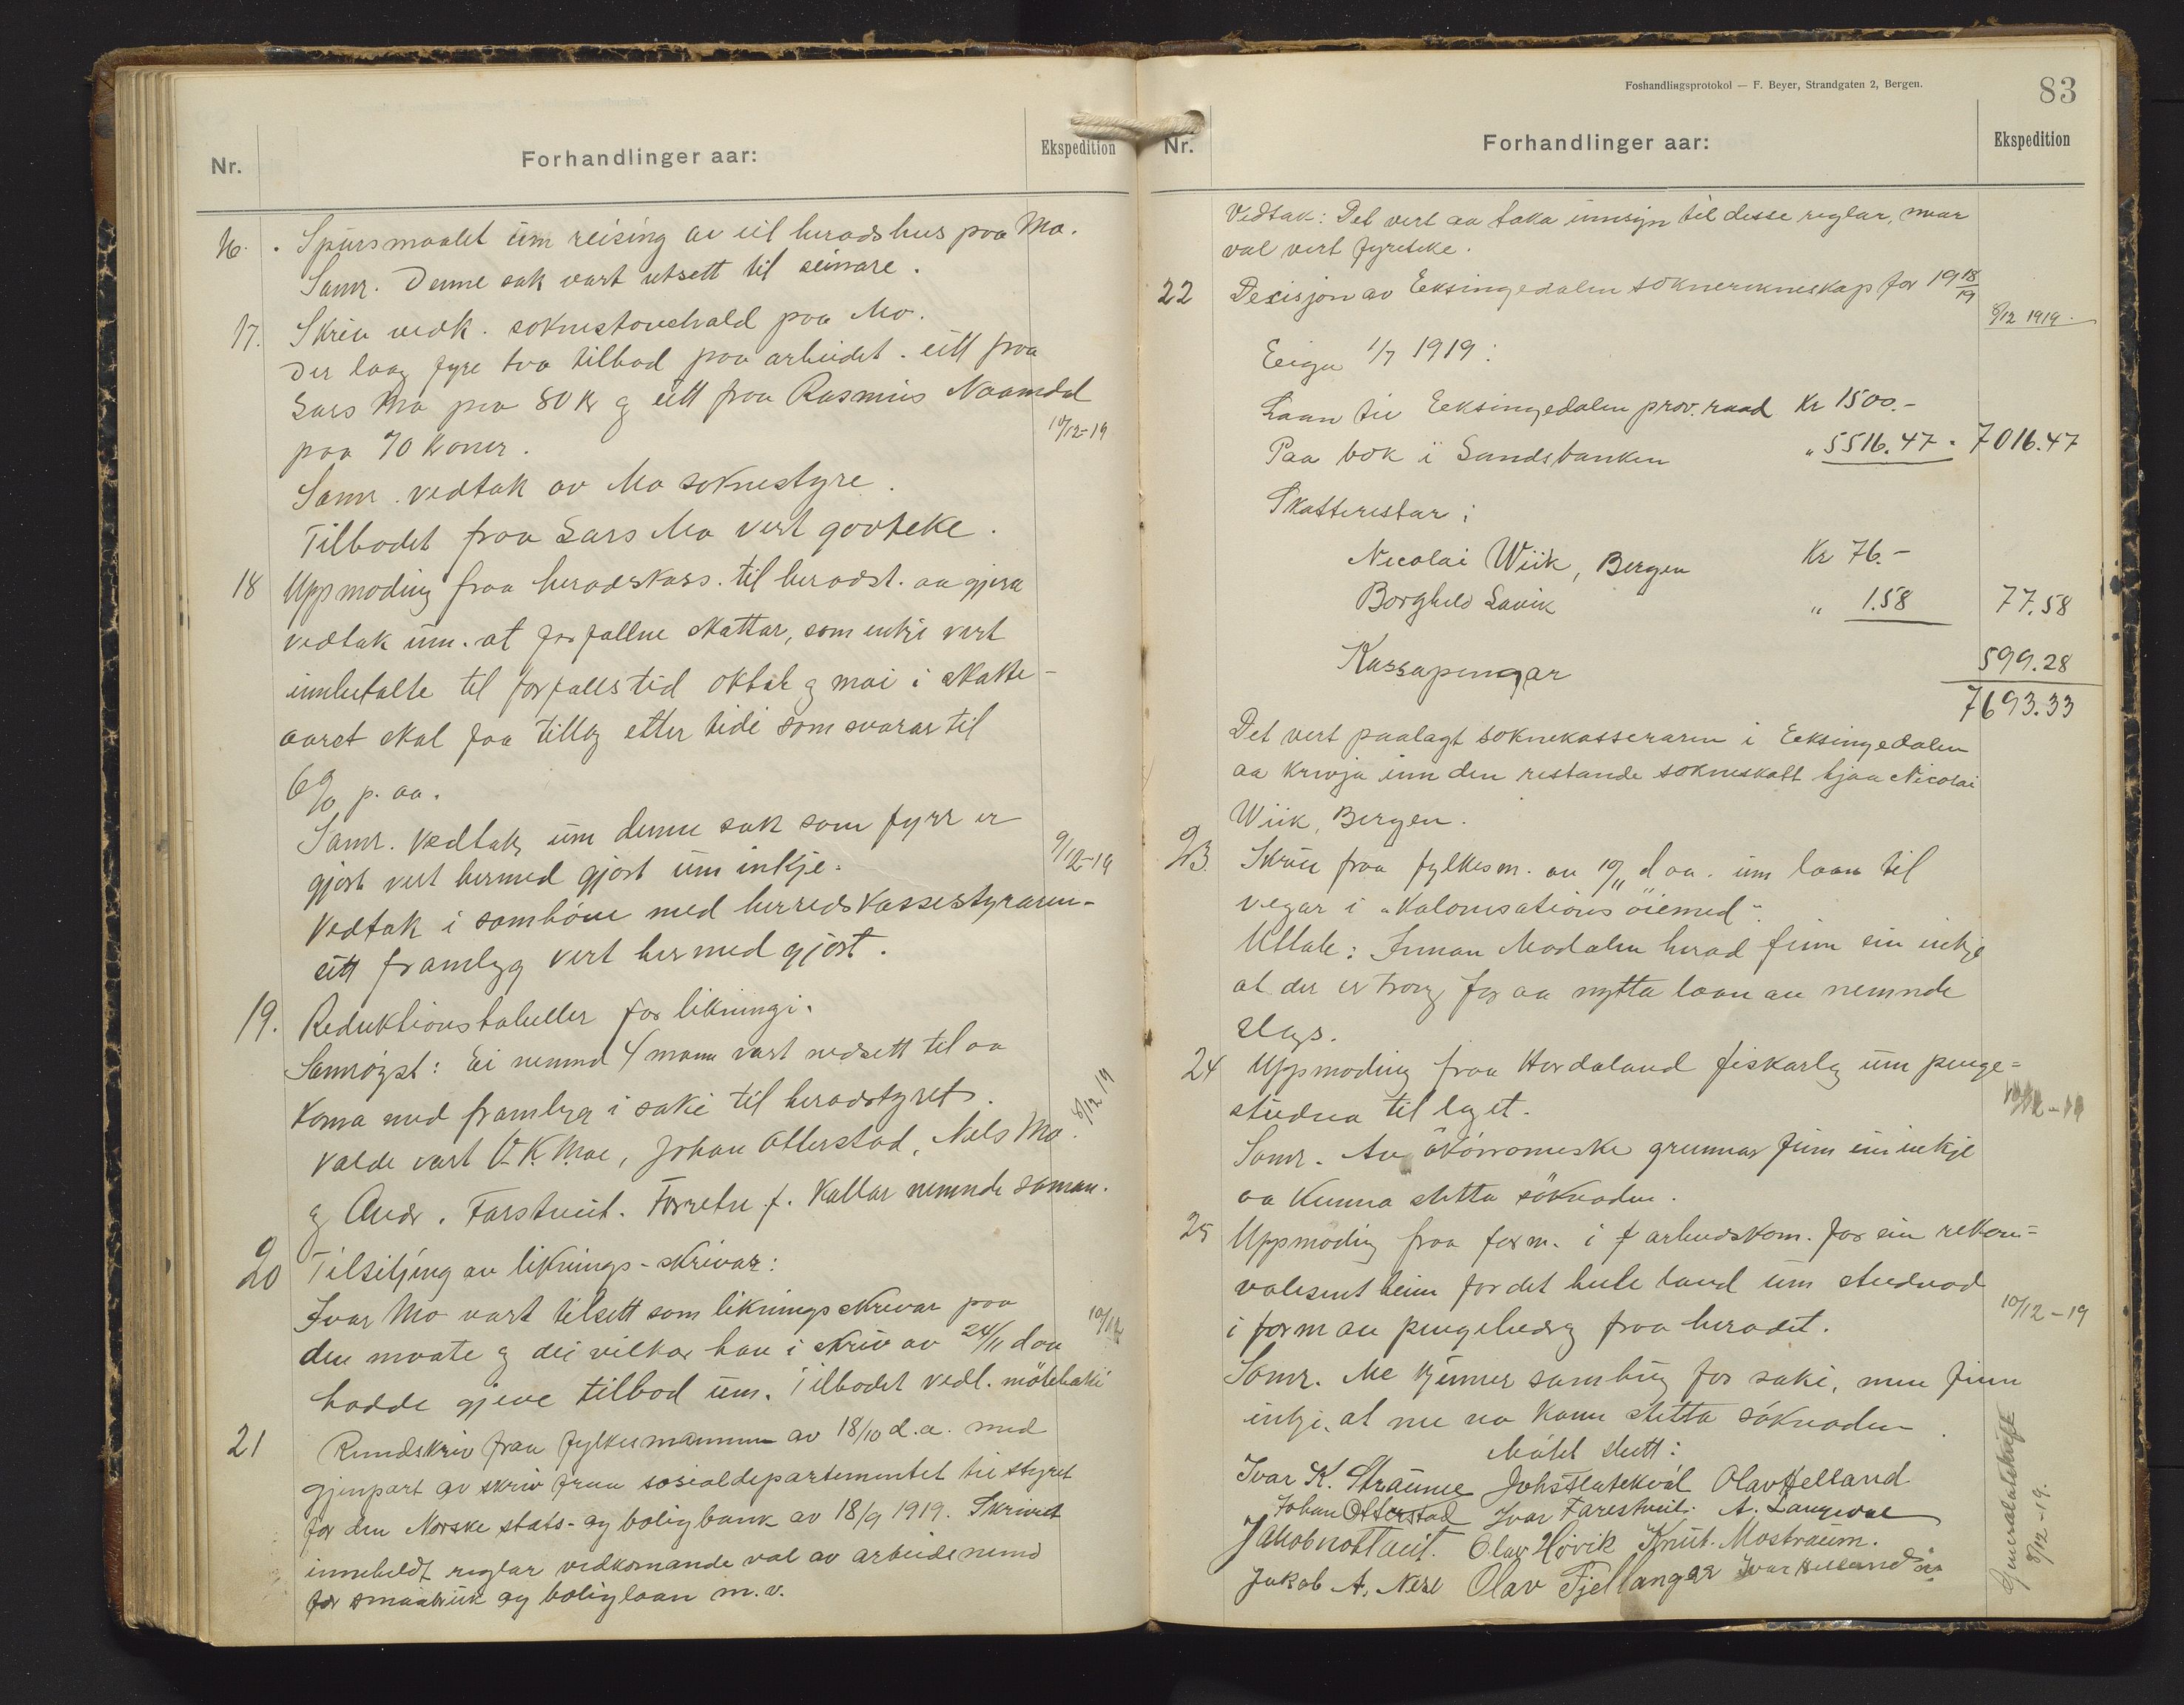 Nr.
Forhandlinger aar:
Ekspedition
16. Spursmaalet um reising av eit heradshus paa Mo.
Samr. Denne sak vart utsett til seinare.
17. Skriv vedk. soknestovehald paa Mo.
Der laag fyre tvo tilbod paa arbeidet. eitt fraa
Lars Mo paa 80 Kr og eitt fraa Rasmus Naamdal
paa 70 Kroner.
10/12-19
Samr. vedtak av Mo soknestyre.
Tilbodet fraa Lars Mo vert godteke.
18 Uppmoding fraa heradskass. til heradst. aa gjera
vedtak um. at forfallne skattar, som inkje vert
innbetalte til forfallstid oktbr og mai i skatte-
aaret skal faa tillegg etter tidi som svarar til
6% p. aa.
Samr. Vedtak um denne sak som fyrr er
gjort vert hermed gjort um inkje.
9/12-19
Vedtak i samhöve med herredskassestyraren-
sitt framlegg vert hermed gjort.
19. Reduktionstabeller for likningi.
Samröyst: Ei nemnd 4 mann vart nedsett til aa
koma med framlegg i saki til heradstyret.
8/12 19
Valde vart O. K. Moe, Johan Otterstad, Nils Mo
og Andr. Farestveit. Förretn f. kallar nemnde saman.
20 Tilsetjing av liknings-skrivar:
Ivar Mo vart tilsett som likningsskrivar paa
10/12
den maate og dei vilkor han i skriv av 24/11 d aa
hadde gjeve tilbod um. Tilbodet vedl. möteboki
21 Rundskriv fraa fylkesmannen av 18/10 d.a. med
gjenpart av skriv fraa sosialdepartementet til styret
for den Norske stats- og boligbank av 18/9 1919. Skrivet
inneheldt reglar vedkomande val av arbeidsnemd
for smaabruk og boliglaan m.v.
Foshandlingsprotokol — F. Beyer, Strandgaten 2, Bergen.
83
Nr.
Forhandlinger aar:
Ekspedition
Vedtak: Det vert aa taka innsyn til desse reglar, naar
val vert fyreteke.
22 Decisjon av Eeksingedalen sokneregneskap for 1918/19
8/12 1919.
Eiga 1/7 1919:
Laan til Eeksingedalen prov. raad Kr 1500.-
Paa bok i Sandsbanken " 5516.47 - 7016.47
Skatterestar:
Nicolai Wiik, Bergen Kr 76.-
Borghild Lavik " 1.58 77.58
Kassapengar 599.28
7693.33
Det vert paalagt soknekasseraren i Eeksingedalen
aa krevja inn den restande sokneskatt hjaa Nicolai
Wiik, Bergen.
23. Skriv fraa fylkesm. av 10/11 d aa. um laan til
vegar i "Kolonisations öiemed".
Uttale: Innan Modalen herad finn ein inkje
at der er trong for aa nytta laan av nemnde
slags.
24 Uppmoding fraa Hordaland fiskarlag um penge=
studna til laget.
Samr. Av ökonomiske grunnar finn ein inkje
aa kunna stetta söknaden.
25 Uppmoding fraa form. i f arbeidskom. for ein rekon=
valesent heim for det hele land um studnad
10/12-19
i form av pengehedrag fraa heradet.
Samr. Me kjenner samhug for saki, men finn
inkje at me no kann stetta söknaden.
Mötet slutt:
Ivar K. Straume Johs Flatekvål Olav Helland
Johan Otterstad Ivar Farestveit. A. Langedal
Jakob Nottveit. Olav Hövik Knut Mostraum.
Jakob A. Nese Olav Fjellanger Ivar Helland
Generalutskrift
8/12-19.